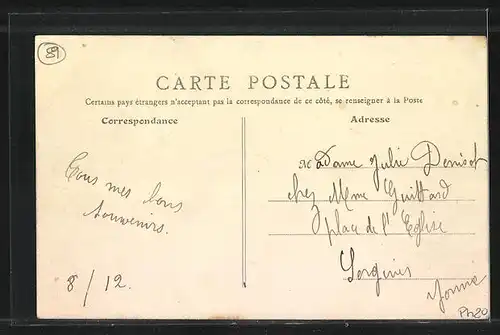 89
CARTE POSTALE
Certains pays étrangers n'acceptant pas la correspondance de ce côté, se renseigner à la Poste
Correspondance
Tous mes bons
souvenirs.
8/12.
Adresse
Madame Julie Denisot
chez Mme Guittard
place de l'Eglise
Sergines
Yonne
Ph20